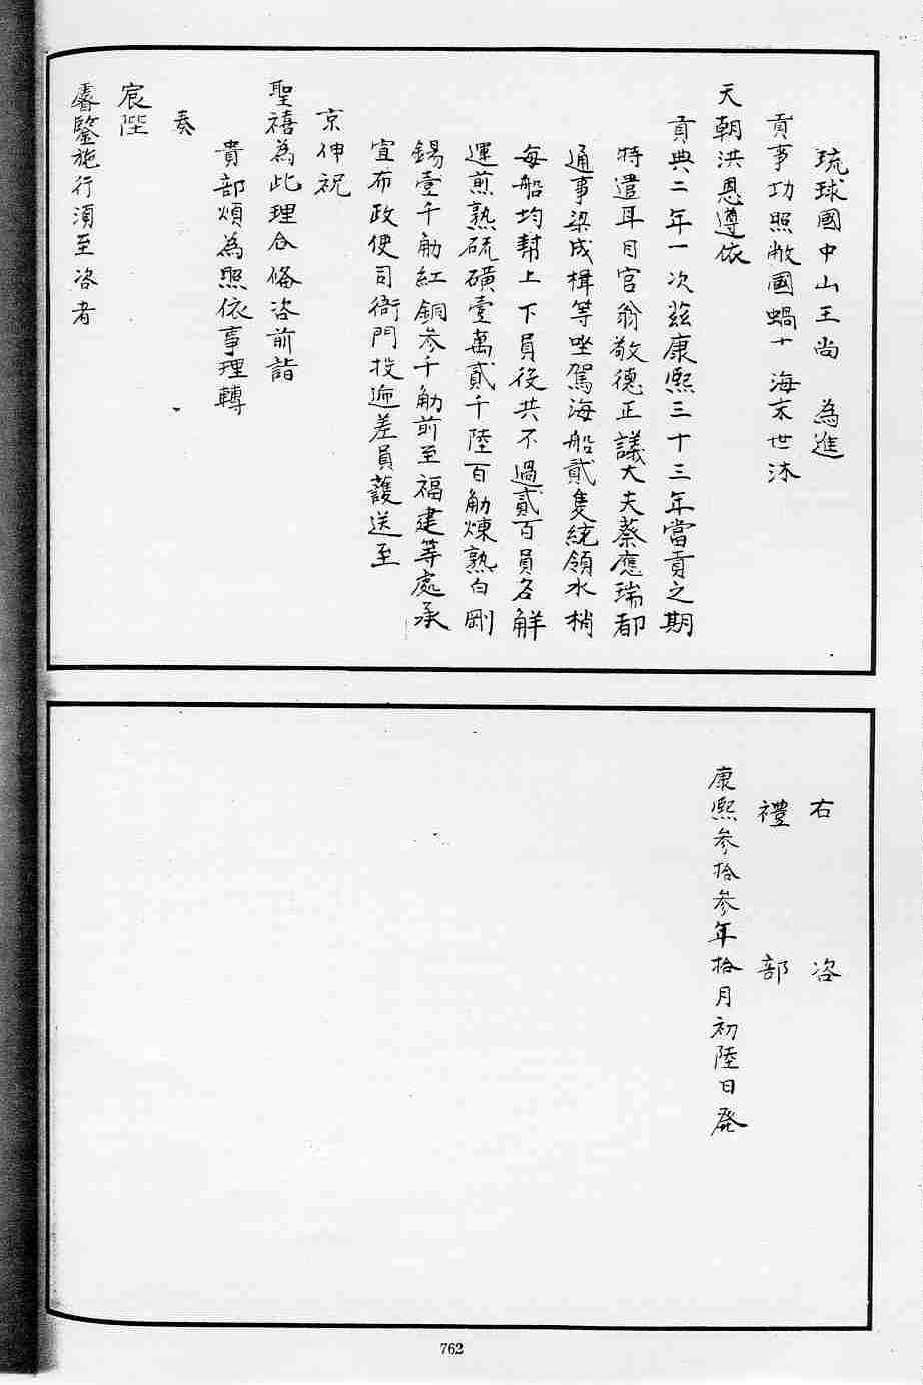 琉球國中山王尚　為進
貢事切照敝國蝸居海末世沐
天朝洪恩遵依
貢典二年一次茲康熙三十三年當貢之期
特遣耳目官翁敬德正議大夫蔡應瑞都
通事梁成楫等坐駕海船貳隻統領水梢
每船均幇上下員役共不過貳百員名解
運煎熟硫磺壹萬貳千陸百觔煉熟白剛
錫壹千觔紅銅参千觔前至福建等處承
宣布政使司衙門投逓差員護送至
京伸祝
聖禧為此理合俻咨前詣
貴部煩為照依事理轉
奏
宸陛
睿鑒施行須至咨者
右　咨
禮　部
康熙参拾参年拾月初陸日發
762